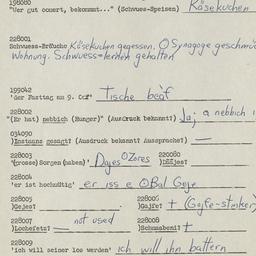 198080
"Wer gut oomert, bekommt..." (Schwues-Speisen) Käsekuchen
228001
Schwuess-Bräuche Käsekuchen gegessen. O Synagoge geschmü
Wohnung. Schwuess=lernen gehalten
199042
'der Fasttag am 9. Oof' Tische beaf
228002
"(Er hat) nebbich (Hunger)" (Ausdruck bekannt?) Ja, a nebbich i
034090
)Instuns gesagt? (Ausdruck bekannt? Aussprache?) —
228003 220080
'(grosse) Sorgen (haben)' Dajes O Zores )DŠŠjes?
228004
'er ist hochmütig' er iss e O Bal Goje
228005 228006
)Gejes? )Gajfe? + (Gajfe-stinker)
228007 not used 228008
)Lochefets? — )Schmusbemi? +
228009
'ich will seiner los werden' ich will ihn battern